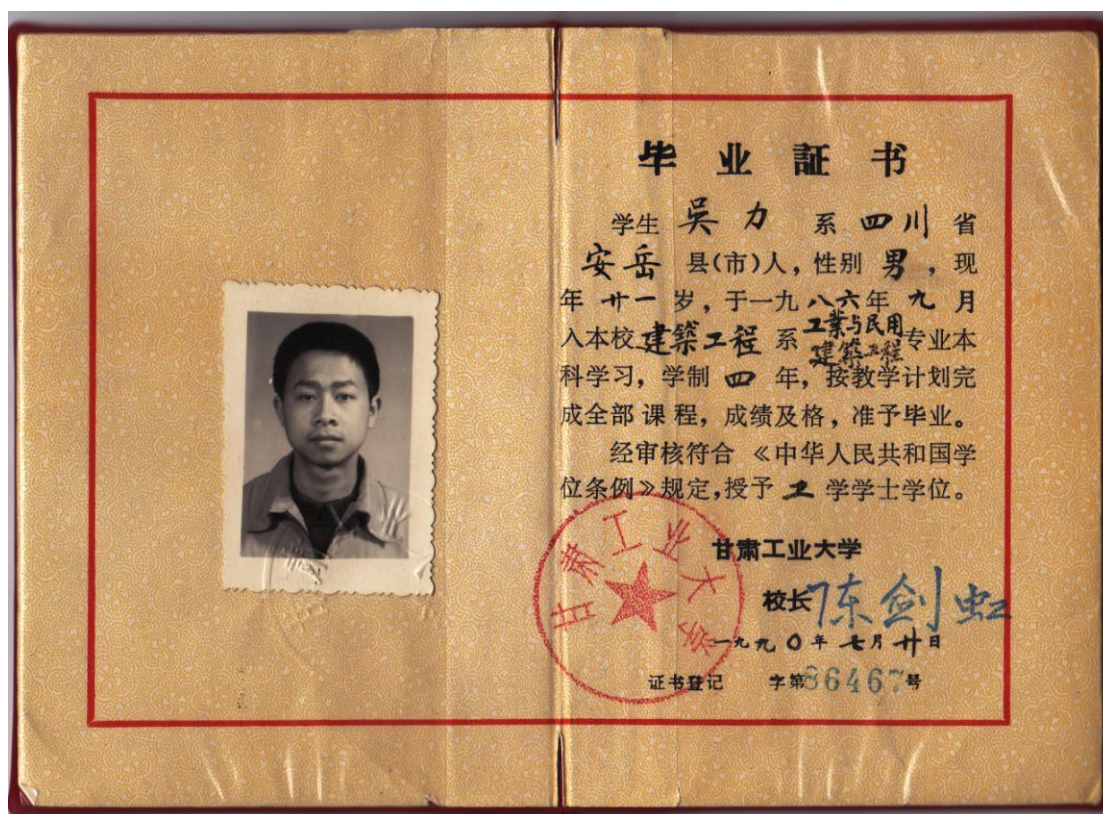 毕业証书
学生 吴力 系 四川 省
安岳 县(市)人，性别 男，现
年 廿一 岁，于一九八六年 九 月
入本校建築工程 系 工業与民用建築工程 专业本
科学习，学制 四 年，按教学计划完
成全部课程，成绩及格，准予毕业。
经审核符合《中华人民共和国学
位条例》规定，授予 工 学学士学位。
甘肃工业大学
甘肃工业大学
校长 陈剑虹
一九九0年七月廿日
证书登记 字第86467号